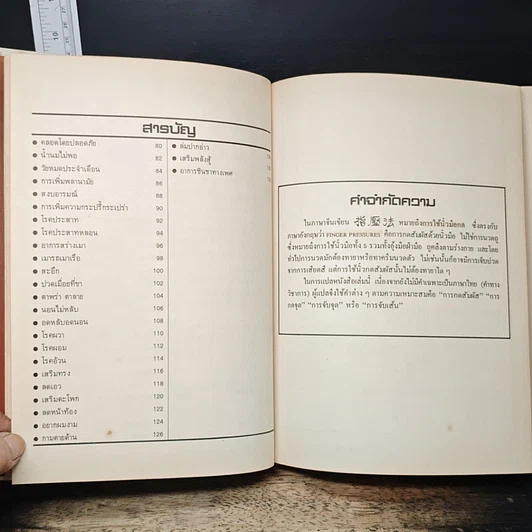 สารบัญ
คลอดโดยปลอดภัย 80
น้ำนมไม่พอ 82
วัยหมดประจำเดือน 84
การเพิ่มพลานามัย 86
สงบอารมณ์ 88
การเพิ่มความกระปรี้กระเปร่า 90
โรคประสาท 92
โรคประสาทหลอน 94
อาการสร่างเมา 96
เมารถเมาเรือ 98
สะอึก 100
ปวดเมื่อยที่ขา 102
ตาพร่า ตาลาย 104
นอนไม่หลับ 106
อดหลับอดนอน 108
โรคผวา 110
โรคผอม 112
โรคอ้วน 114
เสริมทรง 116
ลดเอว 118
เสริมตะโพก 120
ลดหน้าท้อง 122
อยากผมงาม 124
กามตายด้าน 126
ล่มปากอ่าว
เสริมพลังสู้
อาการชินชาทางเพศ
คำจำกัดความ
ในภาษาจีนเขียน 指壓法 หมายถึงการใช้นิ้วมือกด ซึ่งตรงกับ
ภาษาอังกฤษว่า FINGER PRESSURES คือการกดสัมผัสด้วยนิ้วมือ ไม่ใช่การนวดถู
ซึ่งหมายถึงการใช้นิ้วมือทั้ง 5 รวมทั้งอุ้งมือฝ่ามือ ถูคลึงตามร่างกาย และโดย
ทั่วไปการนวดมักต้องทายาหรือทาครีมนวดตัว ไม่เช่นนั้นก็อาจมีการเจ็บปวด
จากการเสียดสี แต่การใช้นิ้วกดสัมผัสนั้นไม่ต้องทายาใด ๆ
ในการแปลหนังสือเล่มนี้ เนื่องจากยังไม่มีคำเฉพาะเป็นภาษาไทย (คำทาง
วิชาการ) ผู้แปลจึงใช้คำต่าง ๆ ตามความเหมาะสมคือ "การกดสัมผัส" "การ
กดจุด" "การจับจุด" หรือ "การจับเส้น"